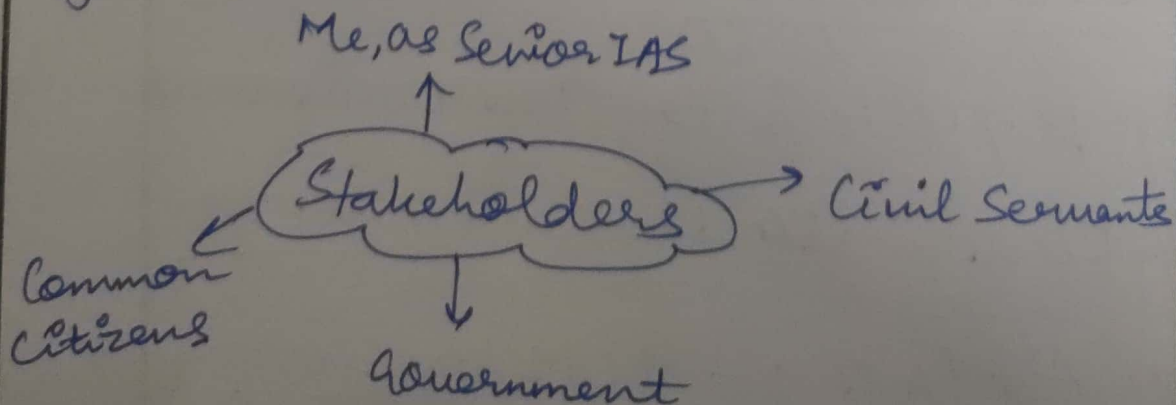 Me, as Senior IAS
Stakeholders
Civil Servants
Common
Citizens
Government